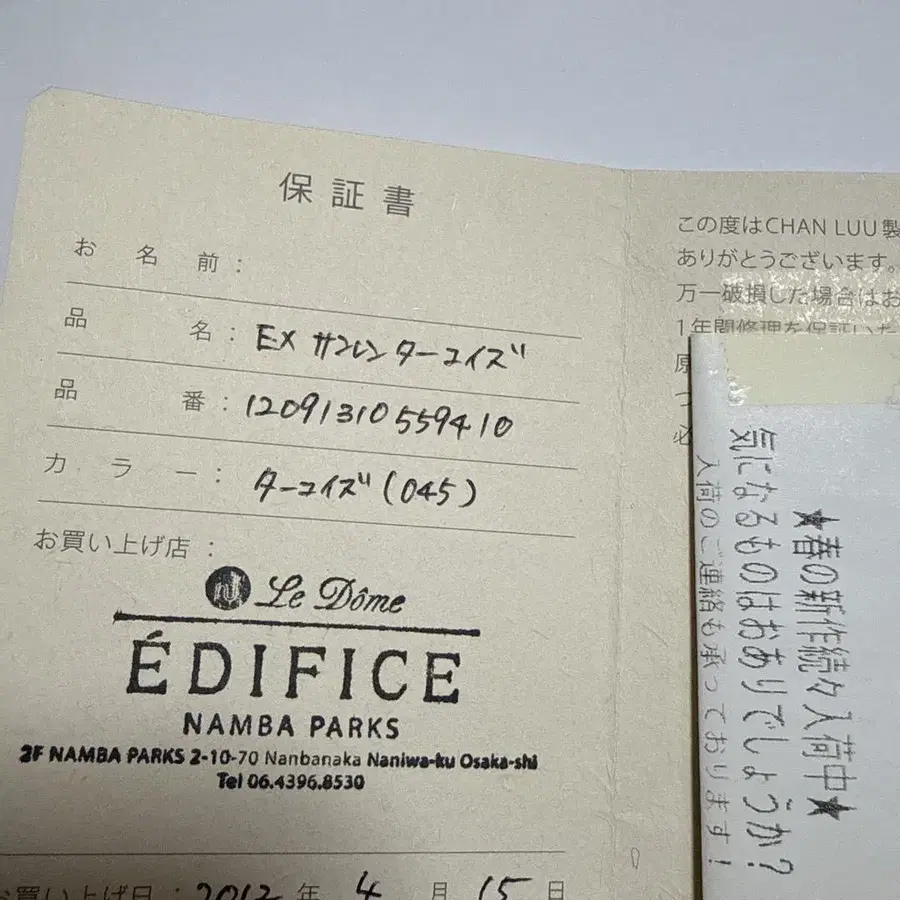 保証書
お名前：
品名：EX サンレンターコイズ
品番：12091310559410
カラー：ターコイズ(045)
お買い上げ店：
Le Dôme
ÉDIFICE
NAMBA PARKS
2F NAMBA PARKS 2-10-70 Nanbanaka Naniwa-ku Osaka-shi
Tel 06.4396.8530
お買い上げ日：2012年4月15日
この度はCHAN LUU製
ありがとうございます。
万一破損した場合はお
1年間修理を保証いた
原
つ
必
★春の新作続々入荷中★
気になるものはおありでしょうか？
入荷のご連絡も承っております！